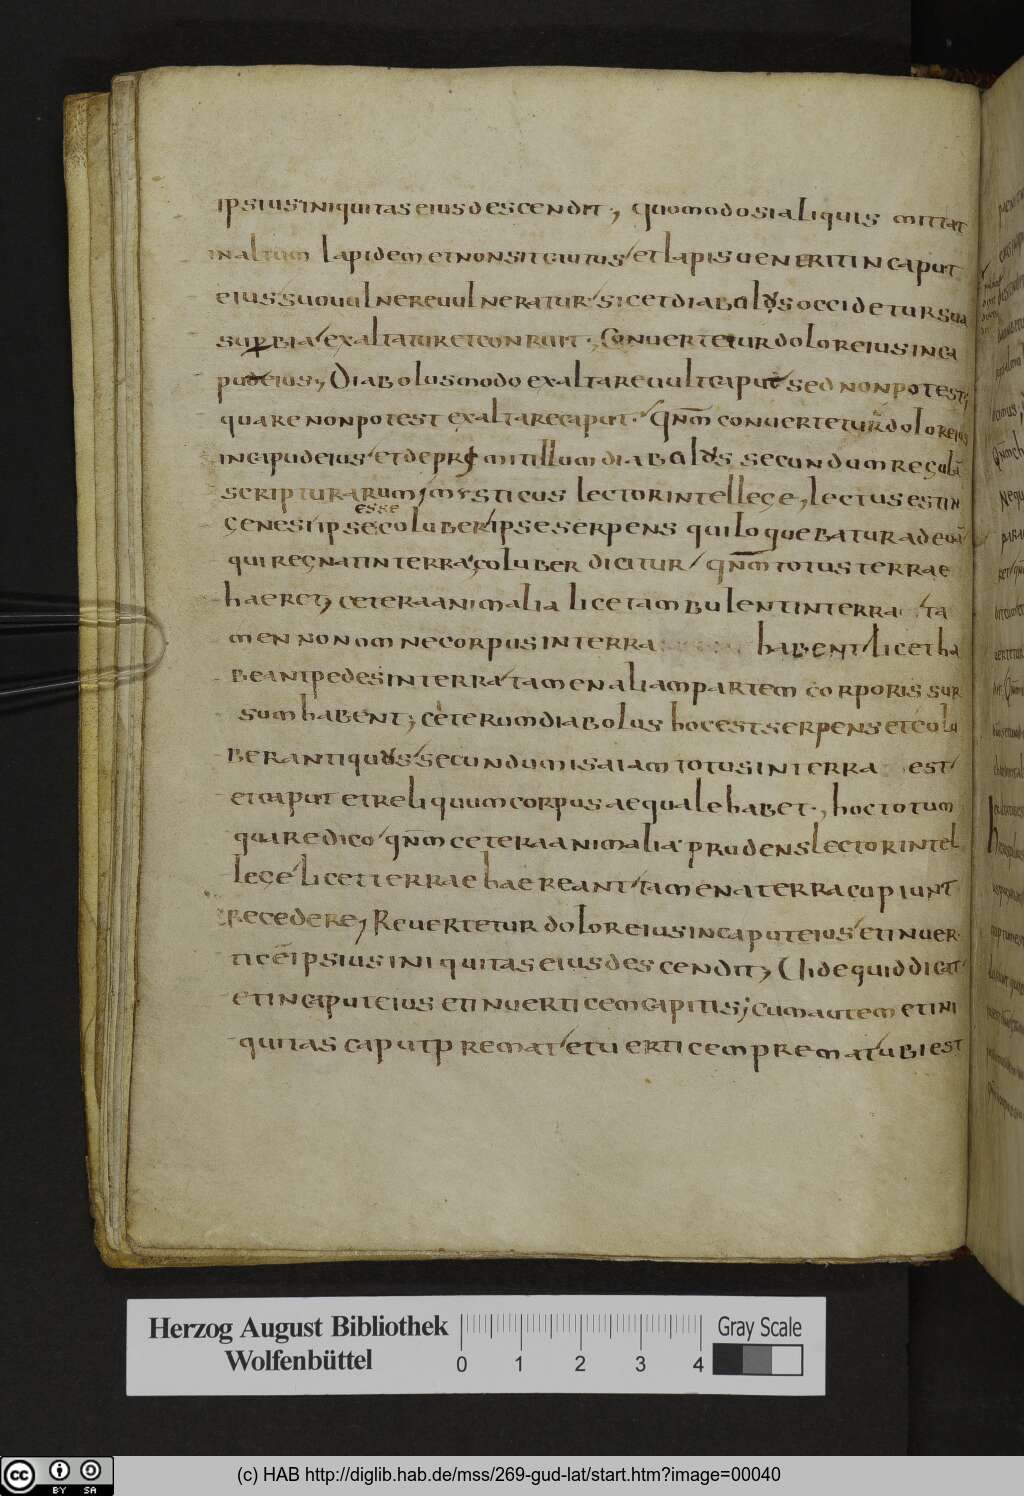 ipsius iniquitas eius descendit; quomodo si aliquis mittat
in altum lapidem et non sit tutus et lapis uenerit in caput
eius suo uulnere uulneratur sic et diabolus occidetur sua
supbia exaltatur et conruit; Conuertetur dolor eius in ca
pud eius; Diabolus modo exaltare uult caput sed non potest;
quare non potest exaltare caput. Qnm̄ conuertetur dolor eius
in capud eius et depr mit illum diabolus secundum regulā
scripturarum; mysticus lector intellege, lectus est in
genesi ipse coluber ipse serpens qui loquebatur ad euā
esse
qui regnat in terra; coluber dicitur qnm̄ totus terrae
haeret; cetera animalia licet ambulent in terra ta
men non omne corpus in terra habent licet ha
beant pedes in terra tamen aliam partem corporis sur
sum habent; ceterum diabolus hoc est serpens et colu
ber antiquus secundum isaiam totus in terra est
et caput et reliquum corpus aequale habet., hoc totum
quare dico qnm̄ cetera animalia prudens lector intel
lege licet terrae haereant tamen a terra cupiunt
recedere; Reuertetur dolor eius in caput eius et in uer
ticē ipsius iniquitas eius descendit; Uide quid dicat
et in caput eius et in uerticem capitis; cum autem et ini
quitas caput premat et uerticem premat ubi est
Herzog August Bibliothek
Wolfenbüttel
0 1 2 3 4
Gray Scale
cc BY SA
(c) HAB http://diglib.hab.de/mss/269-gud-lat/start.htm?image=00040